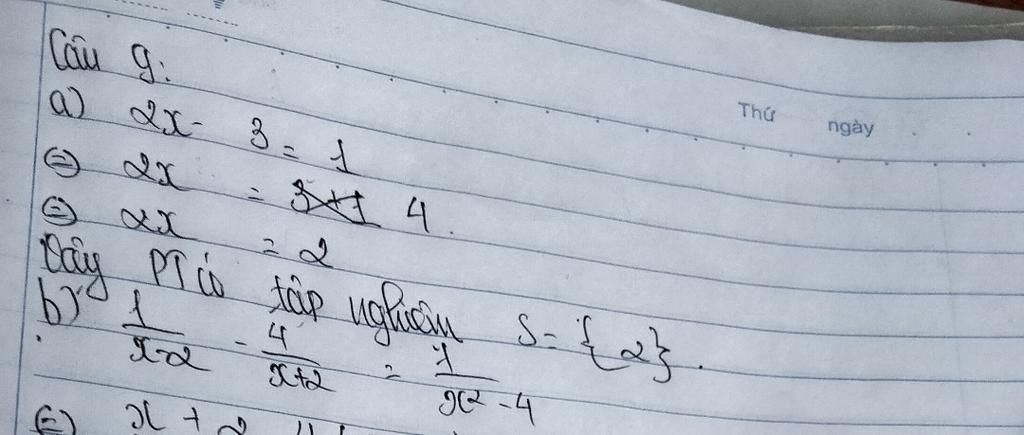 Câu 9:
Thứ ngày
a) 2x - 3 = 1
⇔ 2x = 3+1 4.
⇔ 2x = 2
Vậy PT có tập nghiệm S = {2}.
b) 1/(x-2) - 4/(x+2) = 1/(x² - 4)
⇔ x + 2